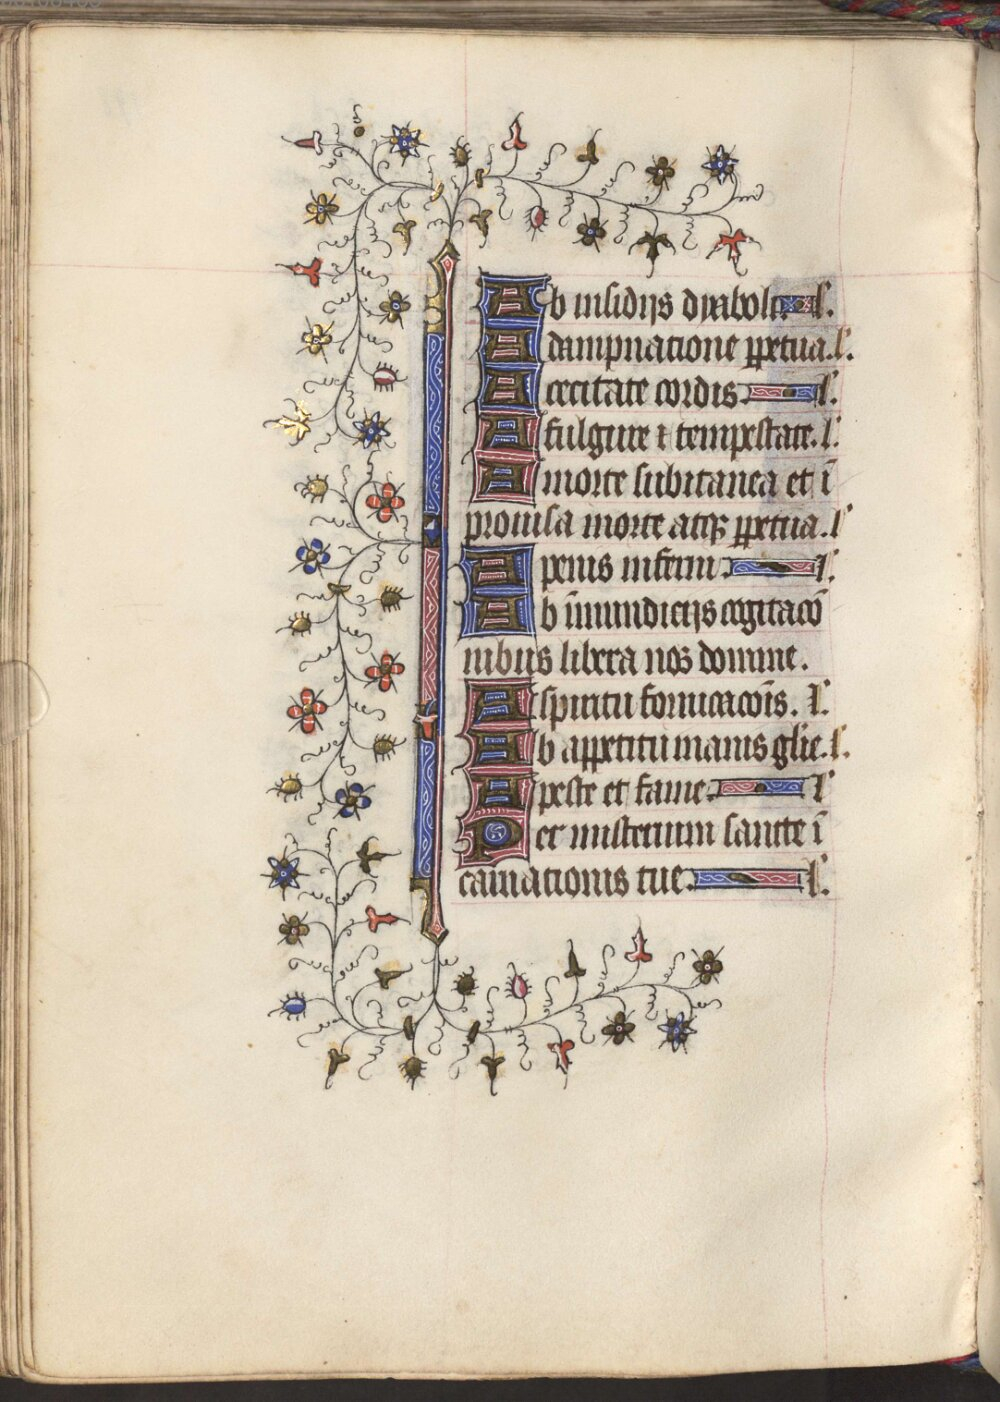 Ab insidijs dyaboli. l'.
A dampnatione ꝑpetua. l'.
A cecitate cordis. l'.
A fulgure ⁊ tempestate. l'.
A morte subitanea et ī
prouisa morte atqꝫ ꝑpetua. l'
A penis inferni. l'.
Ab īmundicijs cogitacō
nibus libera nos domine.
A spiritu fornicacōis. l'.
Ab appetitu inanis glīe. l'.
A peste et fame. l'
Per misterium sancte ī
carnationis tue. l'.